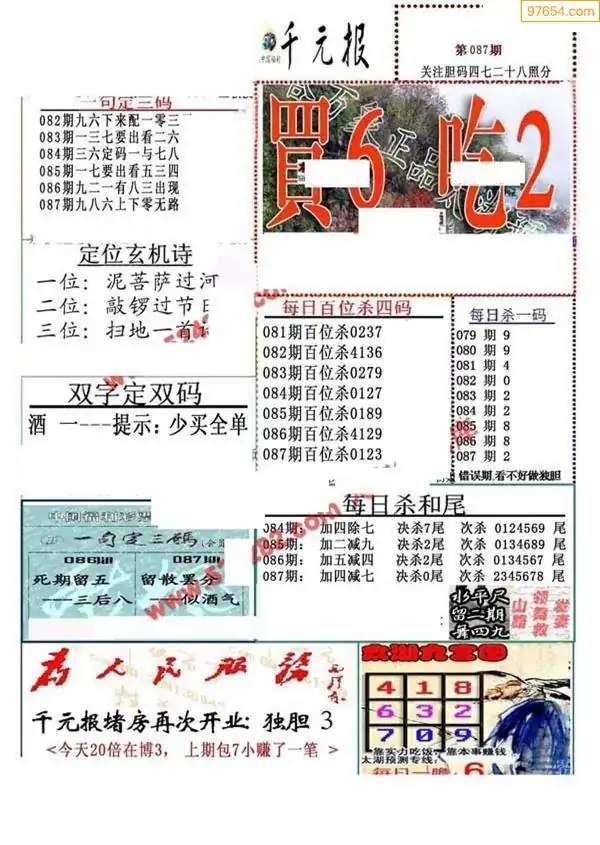 97654.com
千元报
第087期
关注胆码四七二十八照分
一句定三码
082期九六下来配一零三
083期一三七要出看二六
084期三六定码一与七八
085期一七要出看五三四
086期九二一有八三出现
087期九八六上下零无路
買6 吃2
定位玄机诗
一位：泥菩萨过河
二位：敲锣过节日
三位：扫地一首
每日百位杀四码
081期百位杀0237
082期百位杀4136
083期百位杀0279
084期百位杀0127
085期百位杀0189
086期百位杀4129
087期百位杀0123
每日杀一码
079期 9
080期 9
081期 4
082期 0
083期 2
084期 2
085期 8
086期 8
087期 2
错误期,看不好做独胆
双字定双码
酒 一---提示：少买全单
中国福利彩票
一句定三码
086期 087期
死期留五 留散罢分
——三后八 ——似酒气
每日杀和尾
084期： 加四除七 决杀7尾 次杀 0124569 尾
085期： 加二减九 决杀2尾 次杀 0134689 尾
086期： 加五减四 决杀2尾 次杀 0134567 尾
087期： 加四减七 决杀0尾 次杀 2345678 尾
水平尺
留二期
舞四九
为人民服务
千元报堵房再次开业：独胆 3
<今天20倍在博3， 上期包7小赚了一笔 >
太湖九宫图
4 1 8
6 3 2
7 0 9
靠实力吃饭，靠本事赚钱
太湖预测专线：
每日一胆 6